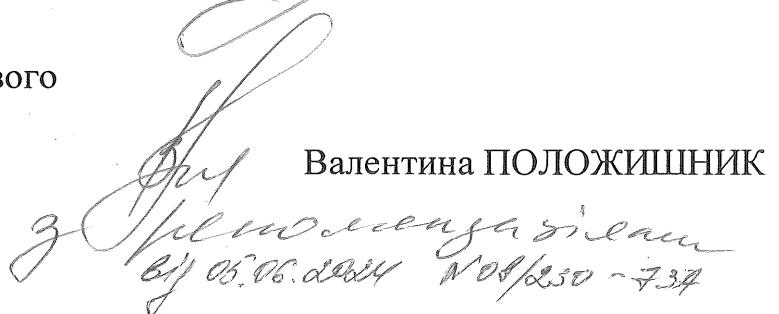 вого
Валентина ПОЛОЖИШНИК
з рекомендаціями
від 05.06.2024 N 08/230-